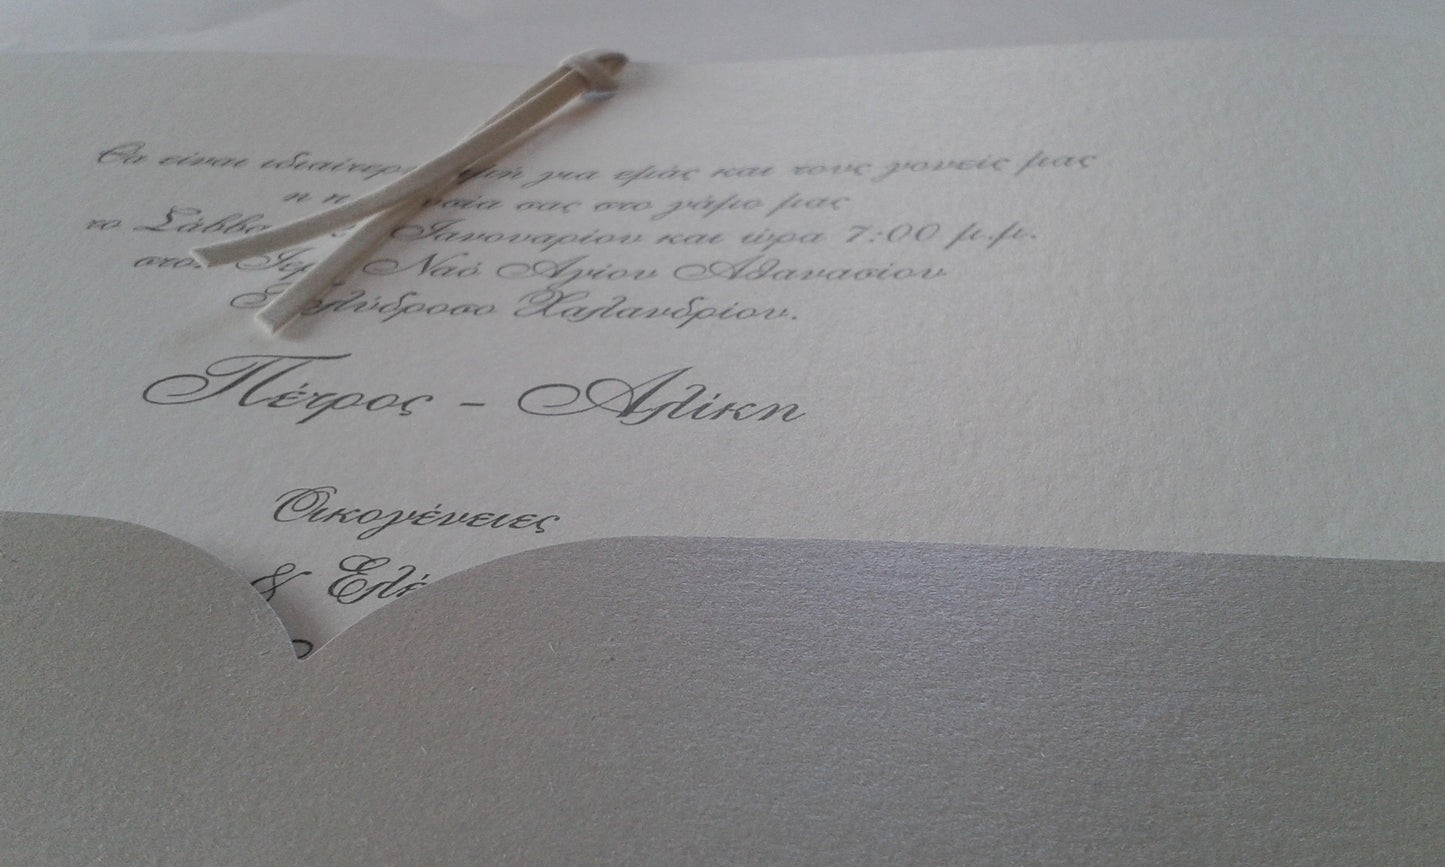 Θα είναι ιδιαίτερη τιμή για εμάς και τους γονείς μας
η σας στο γάμο μας
το Ιανουαρίου και ώρα 7:00 μ.μ.
στον Ναό Αγίου Αθανασίου
Χαλανδρίου.
Πέτρος - Αλίκη
Οικογένειες
&